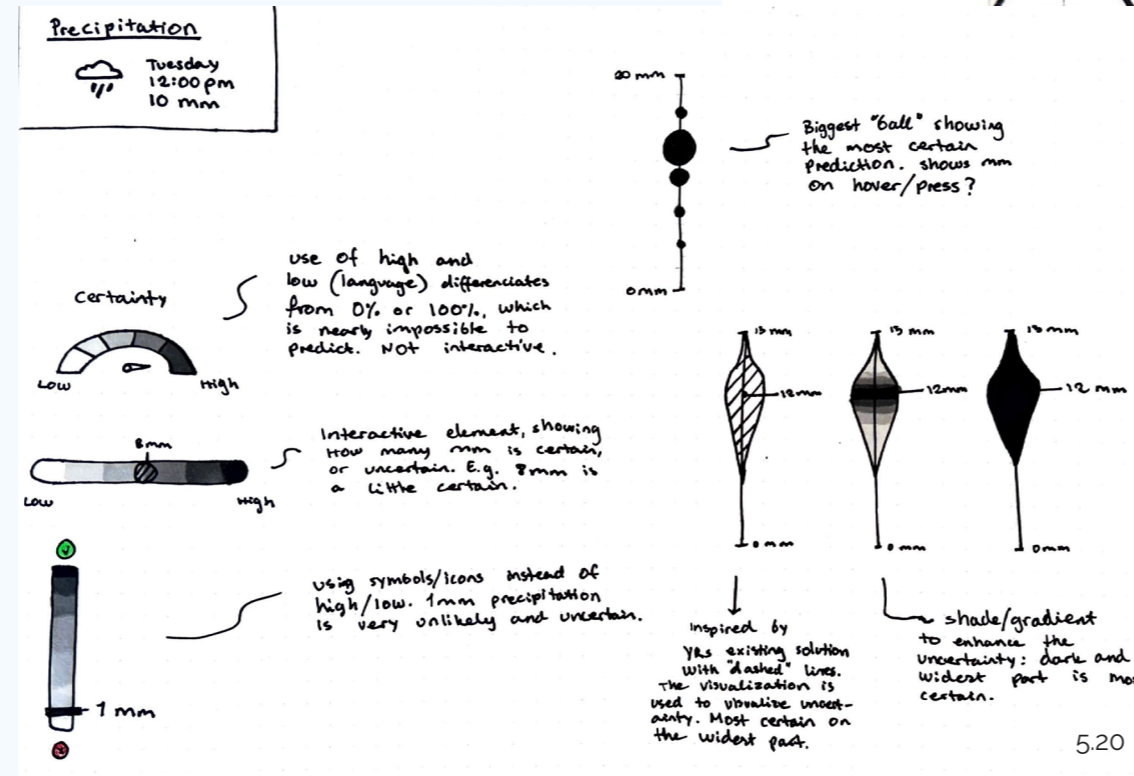 Precipitation
Tuesday
12:00 pm
10 mm
20 mm
0mm
Biggest "ball" showing
the most certain
prediction. shows mm
on hover/press?
Certainty
Low
High
use of high and
low (language) differenciates
from 0% or 100%, which
is nearly impossible to
predict. NOT interactive.
8mm
Low
High
Interactive element, showing
How many mm is certain,
or uncertain. E.g. 8mm is
a little certain.
1 mm
using symbols/icons instead of
high/low. 1mm precipitation
is very unlikely and uncertain.
12mm
0mm
12mm
0mm
12 mm
0mm
Inspired by
YRs existing solution
with "dashed" lines.
The visualization is
used to visualize uncert-
ainty. Most certain on
the widest part.
shade/gradient
to enhance the
uncertainty: dark and
widest part is mo
certain.
5.20